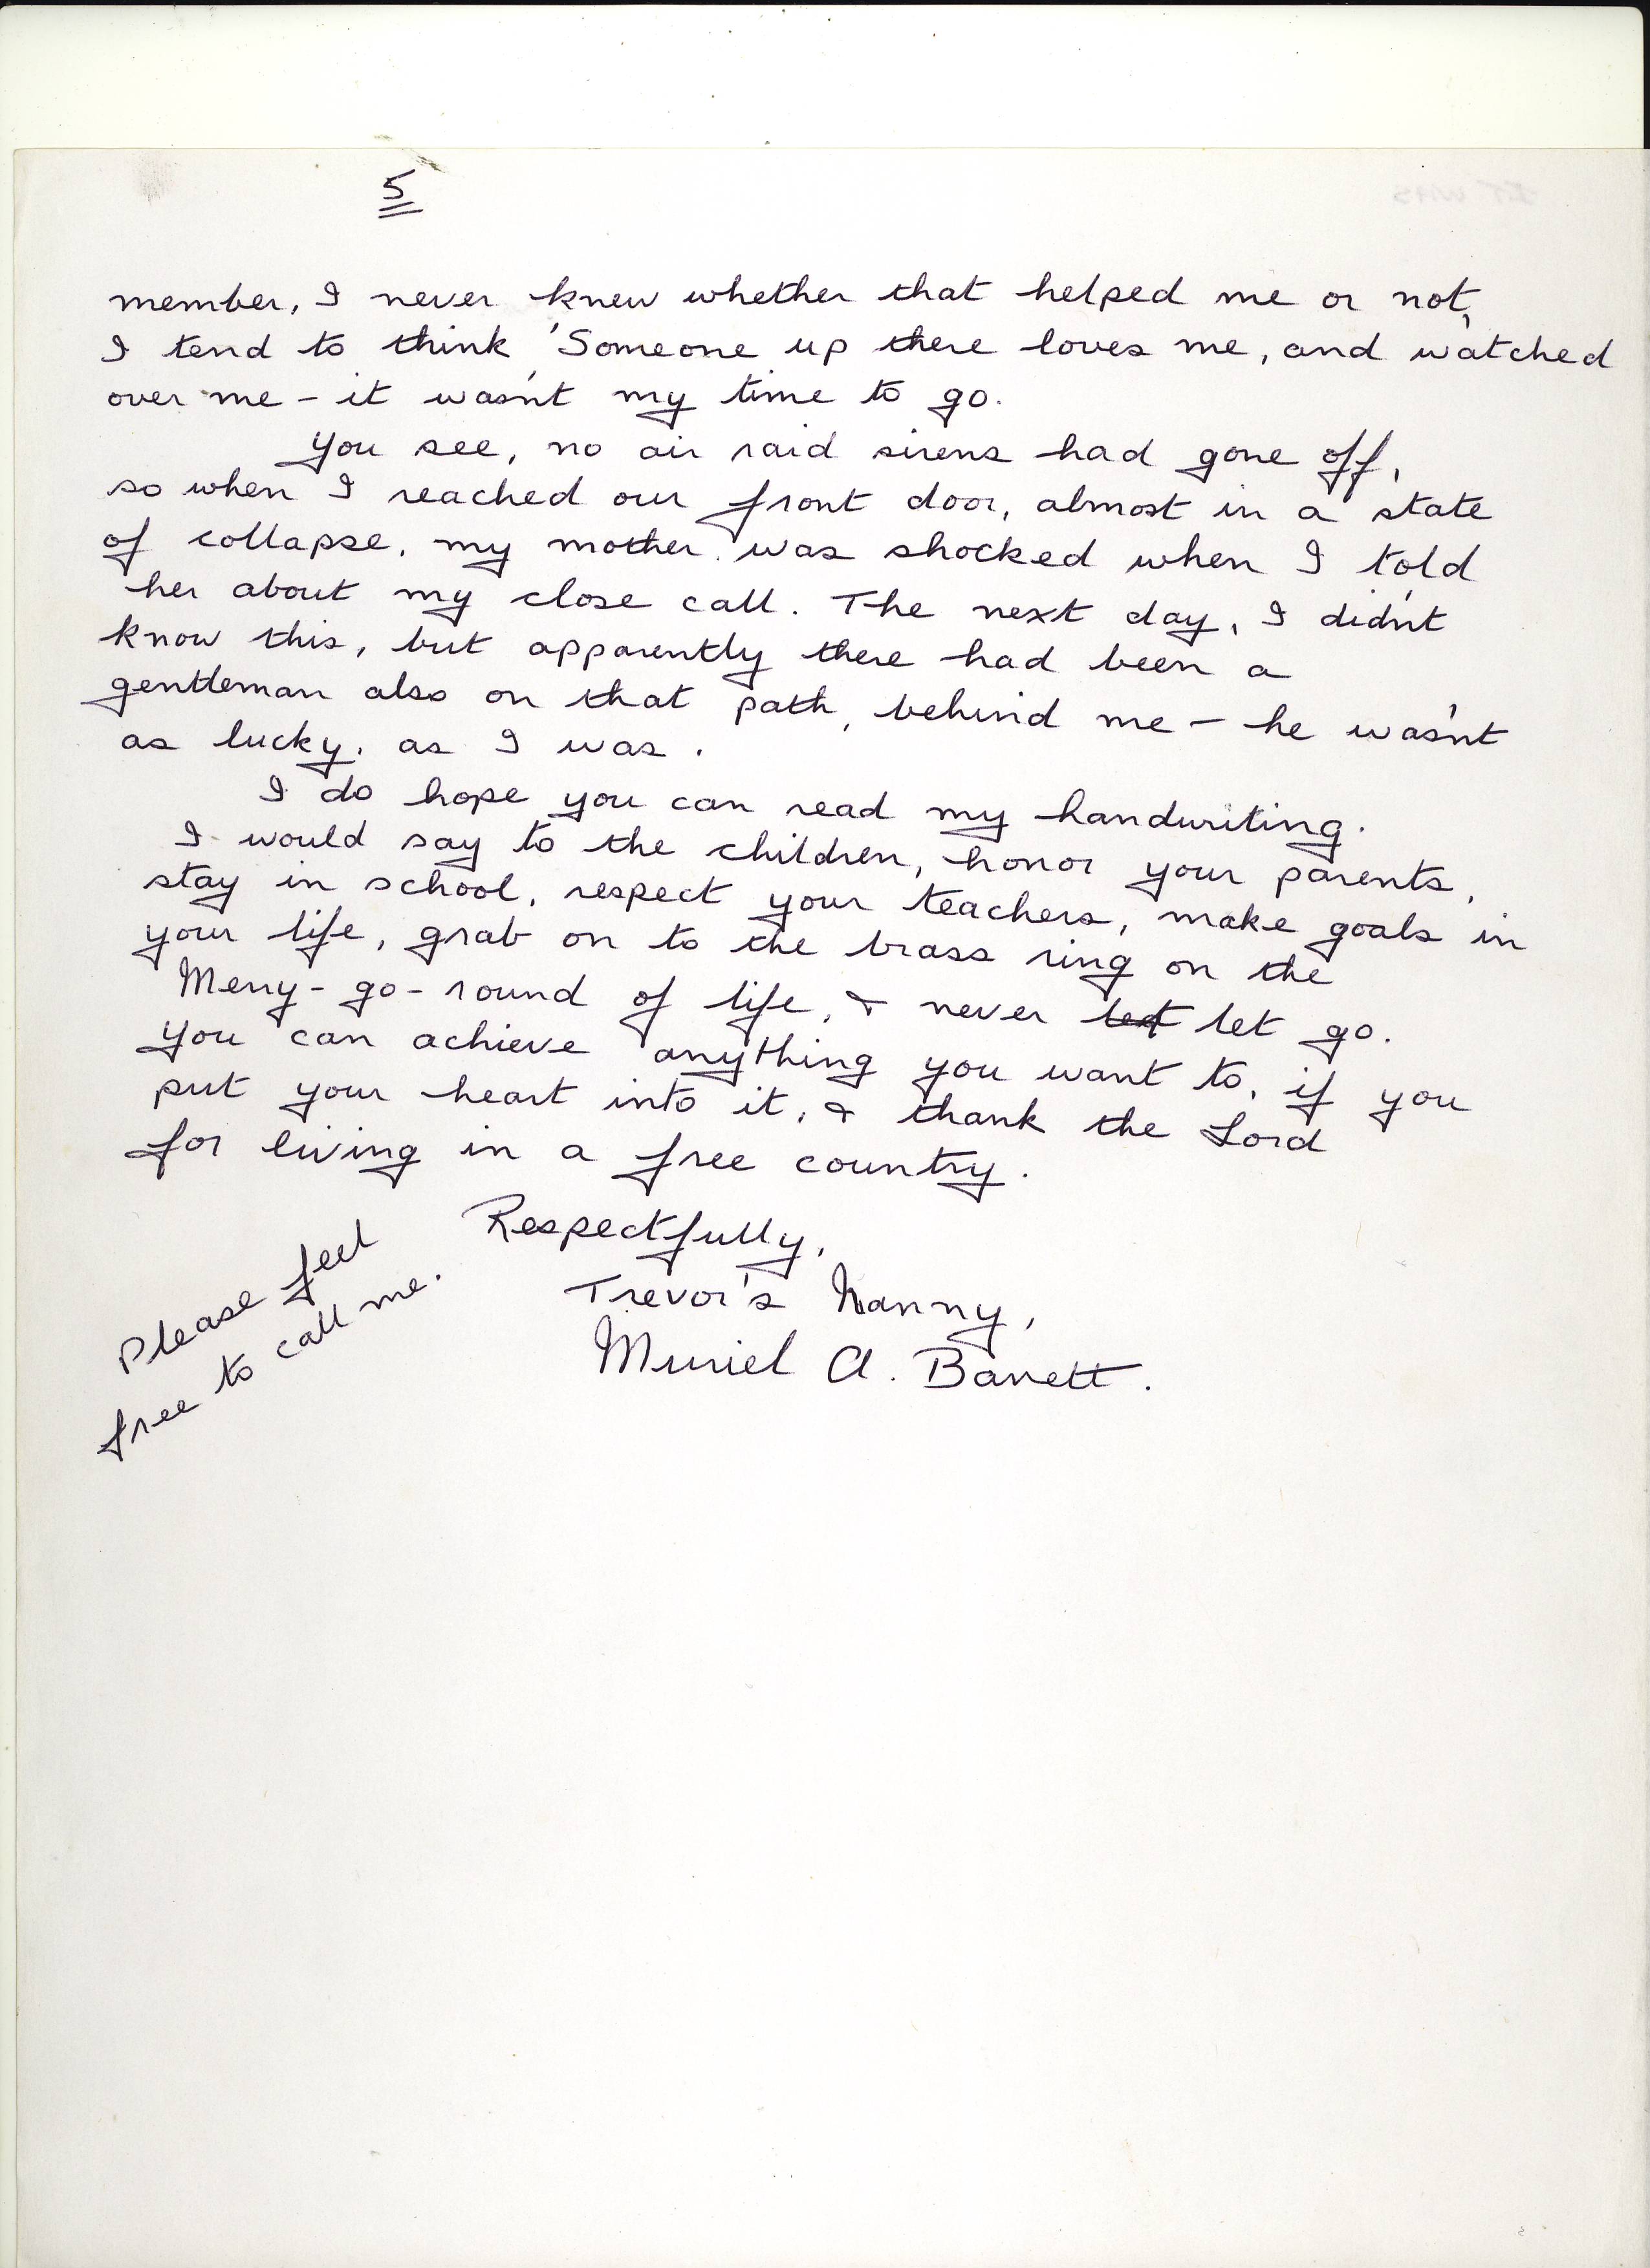 5
member, I never knew whether that helped me or not,
I tend to think 'Someone up there loves me, and watched
over me - it wasn't my time to go.
You see, no air raid sirens had gone off,
so when I reached our front door, almost in a state
of collapse, my mother was shocked when I told
her about my close call. The next day, I didn't
know this, but apparently there had been a
gentleman also on that path, behind me - he wasn't
as lucky, as I was.
I do hope you can read my handwriting.
I would say to the children, honor your parents,
stay in school, respect your teachers, make goals in
your life, grab on to the brass ring on the
Merry-go-round of life, & never let let go.
You can achieve anything you want to, if you
put your heart into it, & thank the Lord
for living in a free country.
Respectfully,
Trevor's Nanny,
Muriel A. Barrett.
Please feel
free to call me.